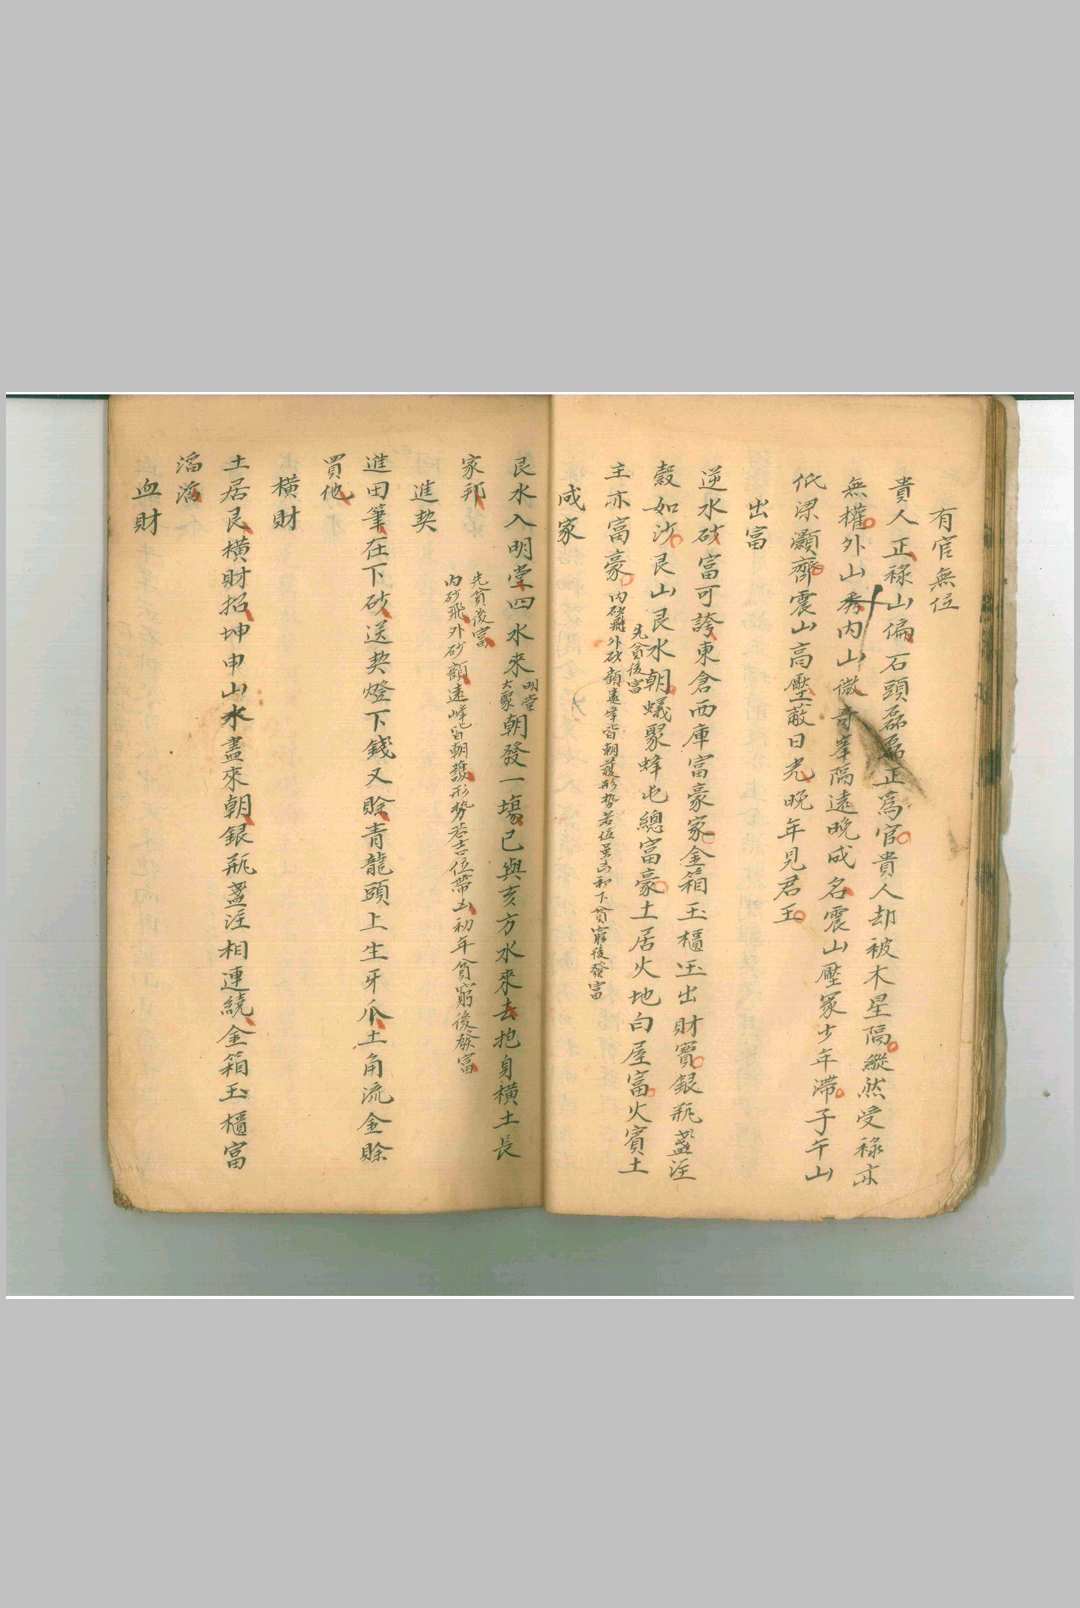 有官無位
貴人正祿山偏石頭磊磊正爲官貴人却被木星隔縱然受祿亦
無權外山秀內山微奇峯隔遠晚成名震山壓冢少年滯子午山
低梁灝齊震山高壓蔽日光晚年見君王
出富
逆水砂富可誇東倉西庫富豪家金箱玉櫃出財寶銀瓶盞注
穀如沙艮山艮水朝蟻聚蜂屯總富豪土居火地白屋富火賓土
主亦富豪
先貧後富
內砂飛外砂顧遠峯皆朝護形勢若位下貧窮後發富
成家
艮水入明堂四水來明堂大聚朝發一塲巳與亥方水來去抱身橫土長
家邦
先貧後富
內砂飛外砂顧遠峰皆朝護形勢若吉位帶凶初年貧窮後發富
進契
進田筆在下砂送契燈下錢又賒青龍頭上生牙爪土角流金賒
買他
橫財
土居艮橫財招坤申山水盡來朝銀瓶盞注相連繞金箱玉櫃富
滔滔
血財